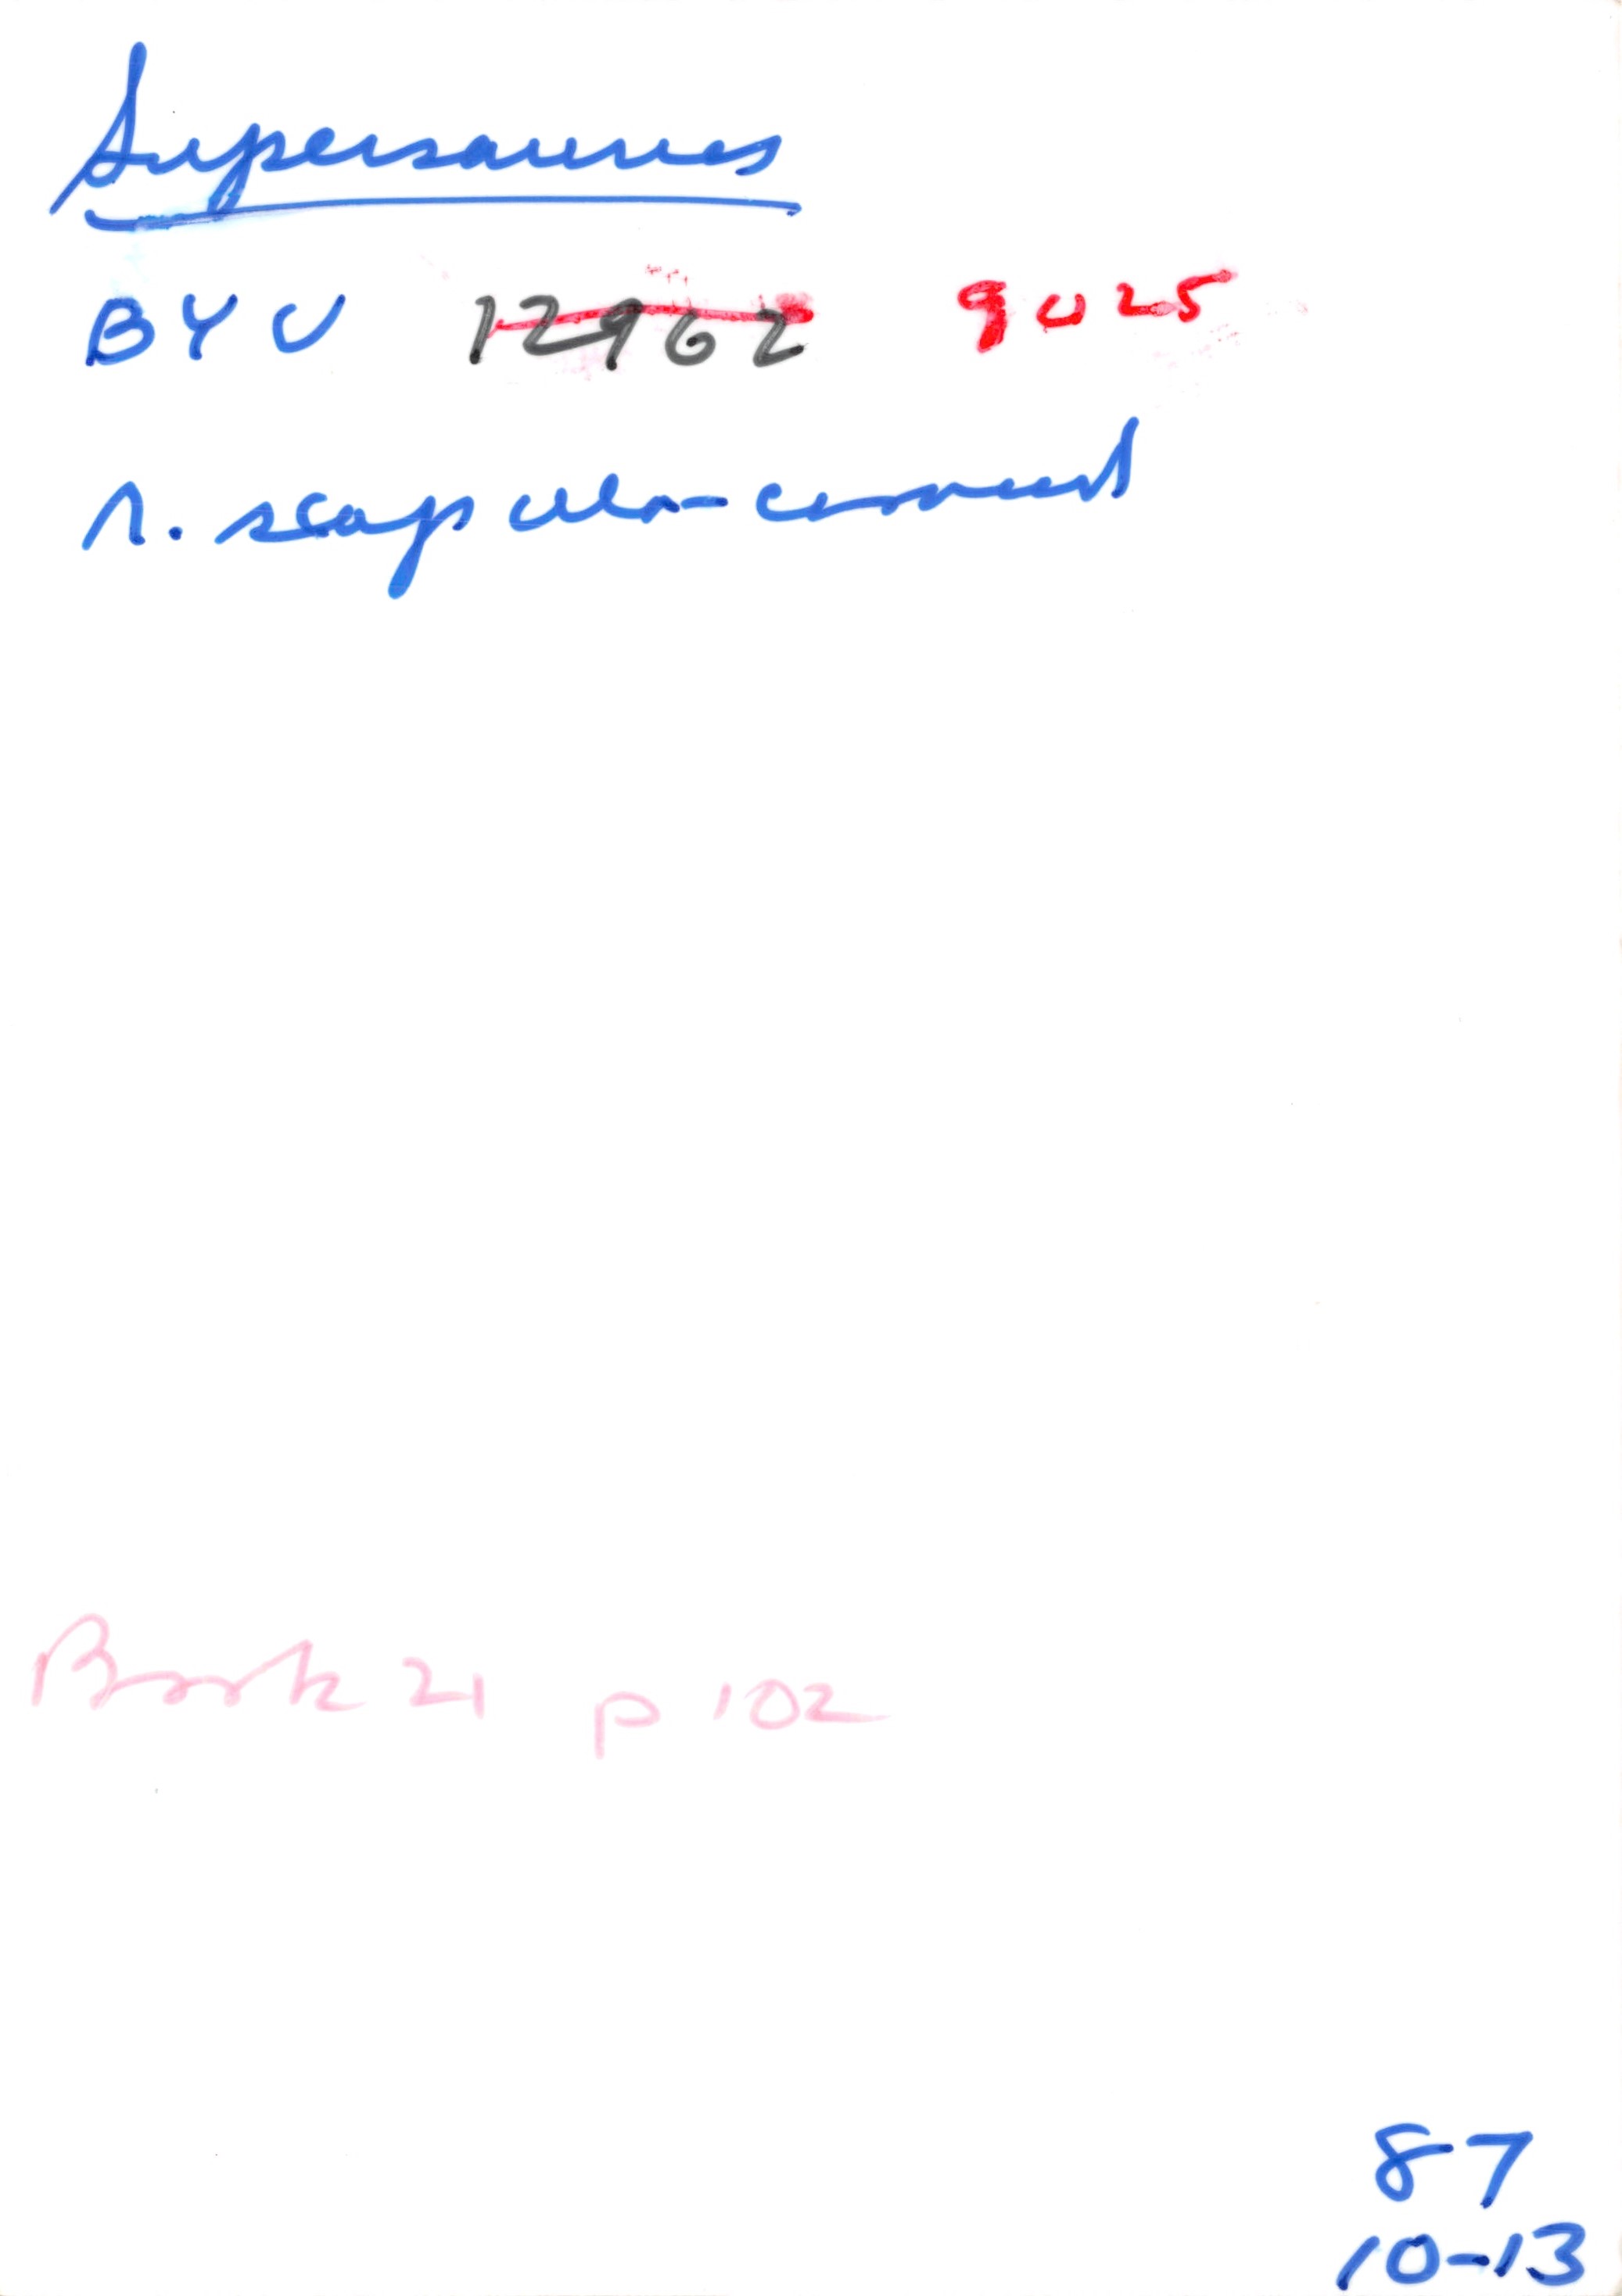 Supersaurus
BYU 12962 9025
r. scapulo-coracoid
Book 21 p 102
87
10-13